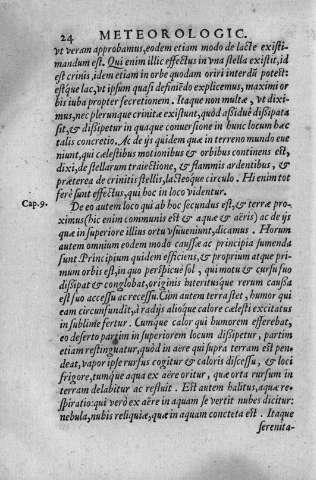 24 METEOROLOGIC.
vt veram approbamus, eodem etiam modo de lacte existi-
mandum est. Qui enim illic effectus in vna stella existit, id
est crinis, idem etiam in orbe quodam oriri interdū potest:
estque lac, vt ipsum quasi definiēdo explicemus, maximi or
bis iuba propter secretionem. Itaque non multæ, vt dixi-
mus, nec plerunque crinitæ existunt, quòd assiduè dissipata
sit, & dissipetur in quaque conuersione in hunc locum hæc
talis concretio. Ac de ijs quidem quæ in terreno mundo eue
niunt, qui cælestibus motionibus & orbibus continens est,
dixi, de stellarum traiectione, & flammis ardentibus, &
præterea de crinitis stellis, lacteóque circulo. Hi enim tot
ferè sunt effectus, qui hoc in loco videntur.
Cap. 9. De eo autem loco qui ab hoc secundus est, & terræ pro-
ximus (hic enim communis est & aquæ & aëris) ac de ijs
quæ in superiore illius ortu vsuueniunt, dicamus. Horum
autem omnium eodem modo caussæ ac principia sumenda
sunt. Principium quidem efficiens, & proprium atque pri-
mum orbis est, in quo perspicuè sol, qui motu & cursu suo
dissipat & conglobat, originis interitusque rerum caussa
est suo accessu ac recessu. Cùm autem terra stet, humor qui
eam circunfundit, à radijs alioque calore cælesti excitatus
in sublime fertur. Cumque calor qui humorem efferebat,
eo deserto partim in superiorem locum dissipetur, partim
etiam restinguatur, quòd in aere qui supra terram est pen
deat, vapor ipse rursus cogitur & caloris discessu, & loci
frigore, tumque aqua ex aëre oritur, quæ orta rursum in
terram delabitur ac refluit. Est autem halitus, aquæ re-
spiratio: qui verò ex aëre in aquam se vertit nubes dicitur:
nebula, nubis reliquiæ, quæ in aquam concreta est. Itaque
serenita-